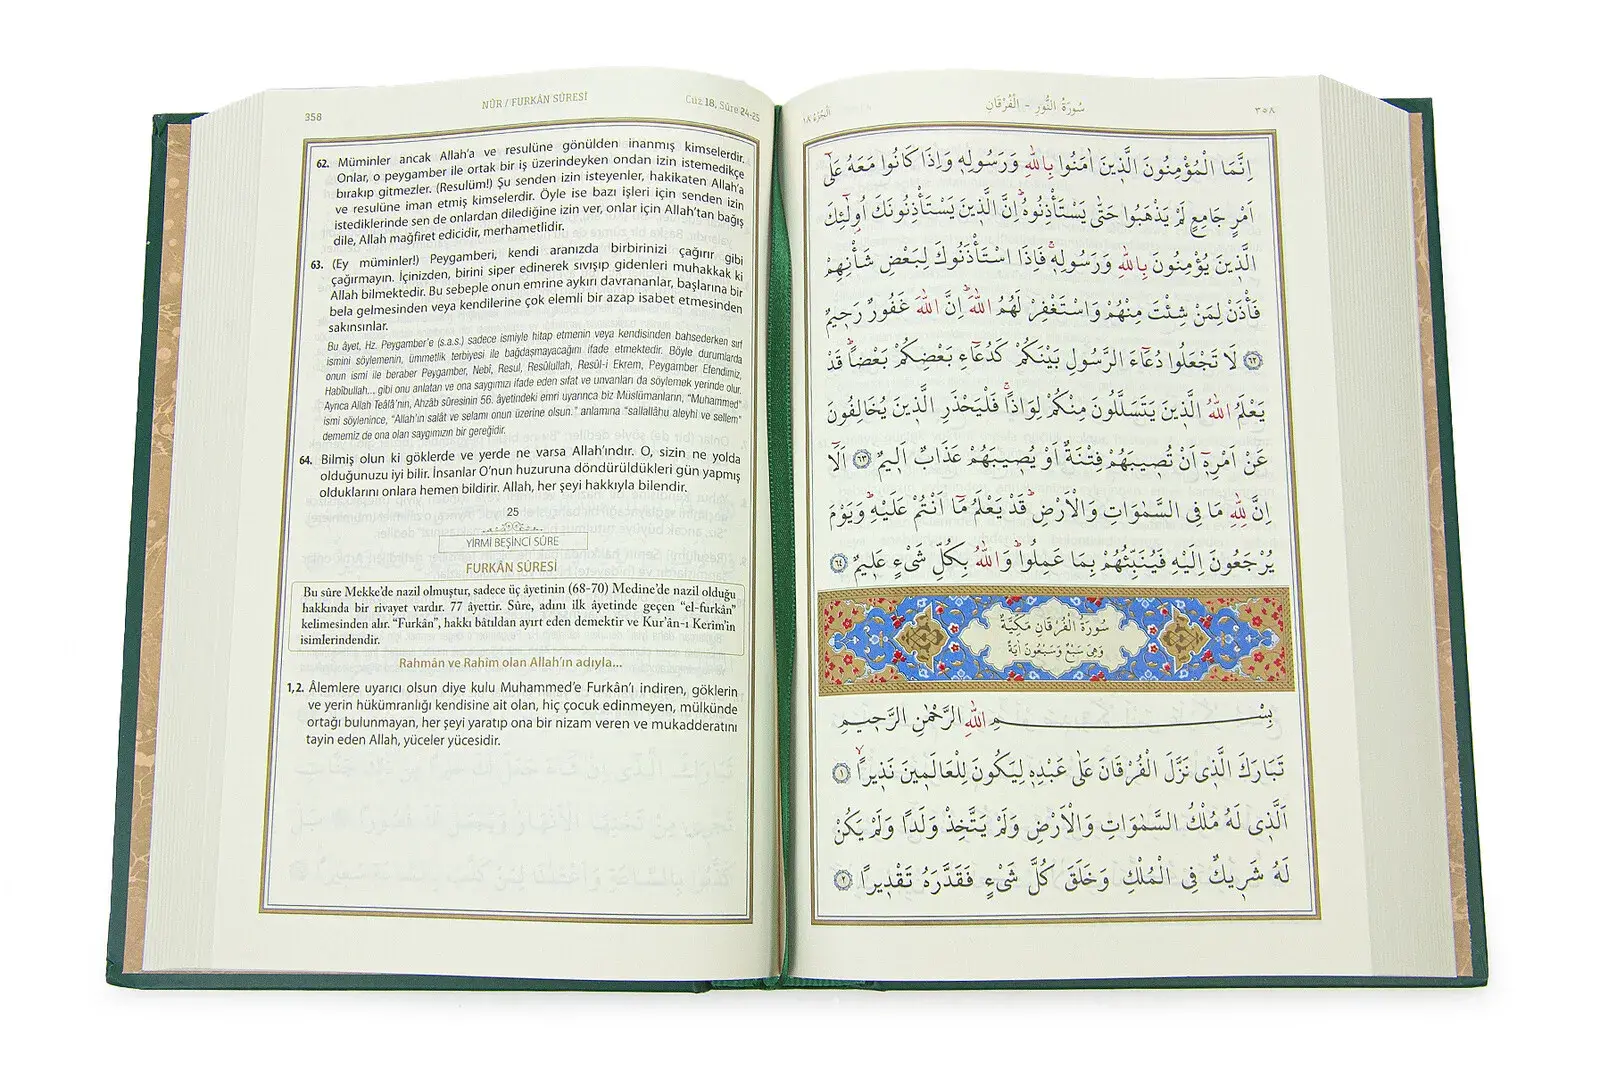 358
NÛR / FURKÂN SÛRESİ
Cüz 18, Sûre 24-25
62. Müminler ancak Allah’a ve resulüne gönülden inanmış kimselerdir.
Onlar, o peygamber ile ortak bir iş üzerindeyken ondan izin istemedikçe
bırakıp gitmezler. (Resulüm!) Şu senden izin isteyenler, hakikaten Allah’a
ve resulüne iman etmiş kimselerdir. Öyle ise bazı işleri için senden izin
istediklerinde sen de onlardan dilediğine izin ver, onlar için Allah’tan bağış
dile, Allah mağfiret edicidir, merhametlidir.
63. (Ey müminler!) Peygamberi, kendi aranızda birbirinizi çağırır gibi
çağırmayın. İçinizden, birini siper edinerek sıvışıp gidenleri muhakkak ki
Allah bilmektedir. Bu sebeple onun emrine aykırı davrananlar, başlarına bir
bela gelmesinden veya kendilerine çok elemli bir azap isabet etmesinden
sakınsınlar.
Bu âyet, Hz. Peygamber’e (s.a.s.) sadece ismiyle hitap etmenin veya kendisinden bahsederken sırf
ismini söylemenin, ümmetlik terbiyesi ile bağdaşmayacağını ifade etmektedir. Böyle durumlarda
onun ismi ile beraber Peygamber, Nebî, Resul, Resûlullah, Resûl-i Ekrem, Peygamber Efendimiz,
Habîbullah... gibi onu anlatan ve ona saygımızı ifade eden sıfat ve unvanları da söylemek yerinde olur.
Ayrıca Allah Teâlâ’nın, Ahzâb sûresinin 56. âyetindeki emri uyarınca biz Müslümanların, “Muhammed”
ismi söylenince, “Allah’ın salât ve selamı onun üzerine olsun.” anlamına “sallallâhu aleyhi ve sellem”
dememiz de ona olan saygımızın bir gereğidir.
64. Bilmiş olun ki göklerde ve yerde ne varsa Allah’ındır. O, sizin ne yolda
olduğunuzu iyi bilir. İnsanlar O’nun huzuruna döndürüldükleri gün yapmış
olduklarını onlara hemen bildirir. Allah, her şeyi hakkıyla bilendir.
25
YİRMİ BEŞİNCİ SÛRE
FURKÂN SÛRESİ
Bu sûre Mekke’de nazil olmuştur, sadece üç âyetinin (68-70) Medine’de nazil olduğu
hakkında bir rivayet vardır. 77 âyettir. Sûre, adını ilk âyetinde geçen “el-furkân”
kelimesinden alır. “Furkân”, hakkı bâtıldan ayırt eden demektir ve Kur’ân-ı Kerîm’in
isimlerindendir.
Rahmân ve Rahîm olan Allah’ın adıyla...
1,2. Âlemlere uyarıcı olsun diye kulu Muhammed’e Furkân’ı indiren, göklerin
ve yerin hükümranlığı kendisine ait olan, hiç çocuk edinmeyen, mülkünde
ortağı bulunmayan, her şeyi yaratıp ona bir nizam veren ve mukadderatını
tayin eden Allah, yüceler yücesidir.
٣٥٨
سُورَةُ النُّورِ - الْفُرْقَانِ
الْجُزْءُ ١٨
اِنَّمَا الْمُؤْمِنُونَ الَّذٖينَ اٰمَنُوا بِاللّٰهِ وَرَسُولِهٖ وَاِذَا كَانُوا مَعَهُ عَلٰٓى
اَمْرٍ جَامِعٍ لَمْ يَذْهَبُوا حَتّٰى يَسْتَأْذِنُوهُؕ اِنَّ الَّذٖينَ يَسْتَأْذِنُونَكَ اُو۬لٰٓئِكَ
الَّذٖينَ يُؤْمِنُونَ بِاللّٰهِ وَرَسُولِهٖۚ فَاِذَا اسْتَأْذَنُوكَ لِبَعْضِ شَأْنِهِمْ
فَأْذَنْ لِمَنْ شِئْتَ مِنْهُمْ وَاسْتَغْفِرْ لَهُمُ اللّٰهَؕ اِنَّ اللّٰهَ غَفُورٌ رَحٖيمٌ
﴿٦٢﴾ لَا تَجْعَلُوا دُعَٓاءَ الرَّسُولِ بَيْنَكُمْ كَدُعَٓاءِ بَعْضِكُمْ بَعْضاًؕ قَدْ
يَعْلَمُ اللّٰهُ الَّذٖينَ يَتَسَلَّلُونَ مِنْكُمْ لِوَاذاًۚ فَلْيَحْذَرِ الَّذٖينَ يُخَالِفُونَ
عَنْ اَمْرِهٖٓ اَنْ تُصٖيبَهُمْ فِتْنَةٌ اَوْ يُصٖيبَهُمْ عَذَابٌ اَلٖيمٌ ﴿٦٣﴾ اَلَٓا
اِنَّ لِلّٰهِ مَا فِي السَّمٰوَاتِ وَالْاَرْضِؕ قَدْ يَعْلَمُ مَٓا اَنْتُمْ عَلَيْهِؕ وَيَوْمَ
يُرْجَعُونَ اِلَيْهِ فَيُنَبِّئُهُمْ بِمَا عَمِلُواؕ وَاللّٰهُ بِكُلِّ شَيْءٍ عَلٖيمٌ ﴿٦٤﴾
سُورَةُ الْفُرْقَانِ مَكِّيَّةٌ
وَهِيَ سَبْعٌ وَسَبْعُونَ اٰيَةً
بِسْمِ اللّٰهِ الرَّحْمٰنِ الرَّحٖيمِ
تَبَارَكَ الَّذٖي نَزَّلَ الْفُرْقَانَ عَلٰى عَبْدِهٖ لِيَكُونَ لِلْعَالَمٖينَ نَذٖيراًۙ ﴿١﴾
اَلَّذٖي لَهُ مُلْكُ السَّمٰوَاتِ وَالْاَرْضِ وَلَمْ يَتَّخِذْ وَلَداً وَلَمْ يَكُنْ
لَهُ شَرٖيكٌ فِي الْمُلْكِ وَخَلَقَ كُلَّ شَيْءٍ فَقَدَّرَهُ تَقْدٖيراً ﴿٢﴾